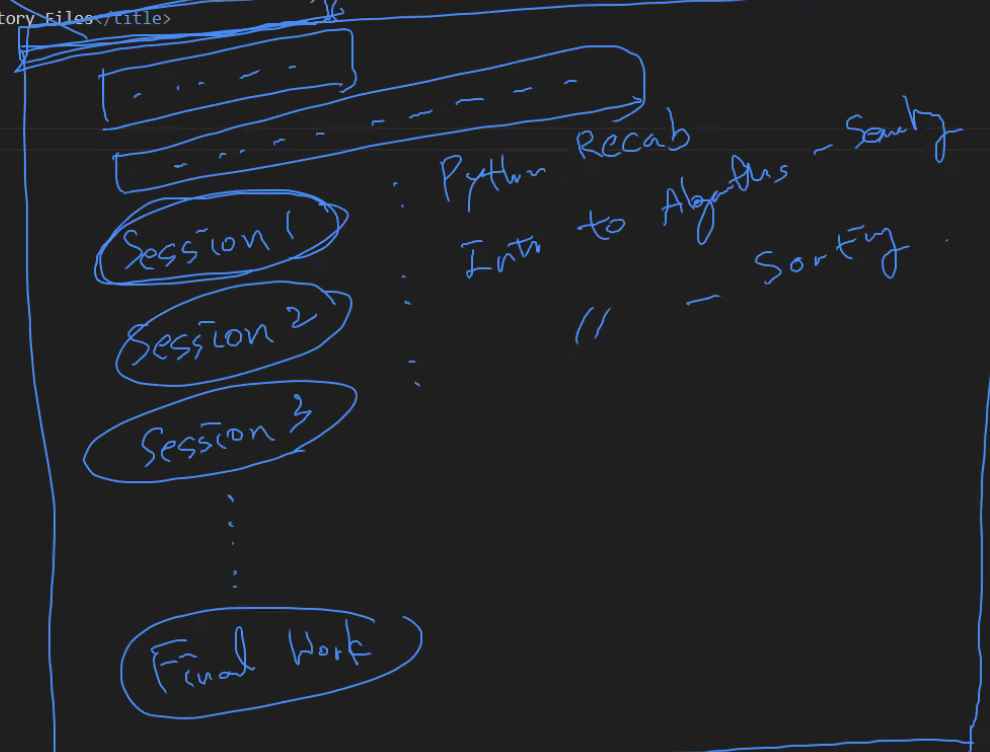 tory Files</title>
Session 1 : Python Recab
Session 2 : Intro to Algorithms - Searching
Session 3 : " - Sorting
Final Work